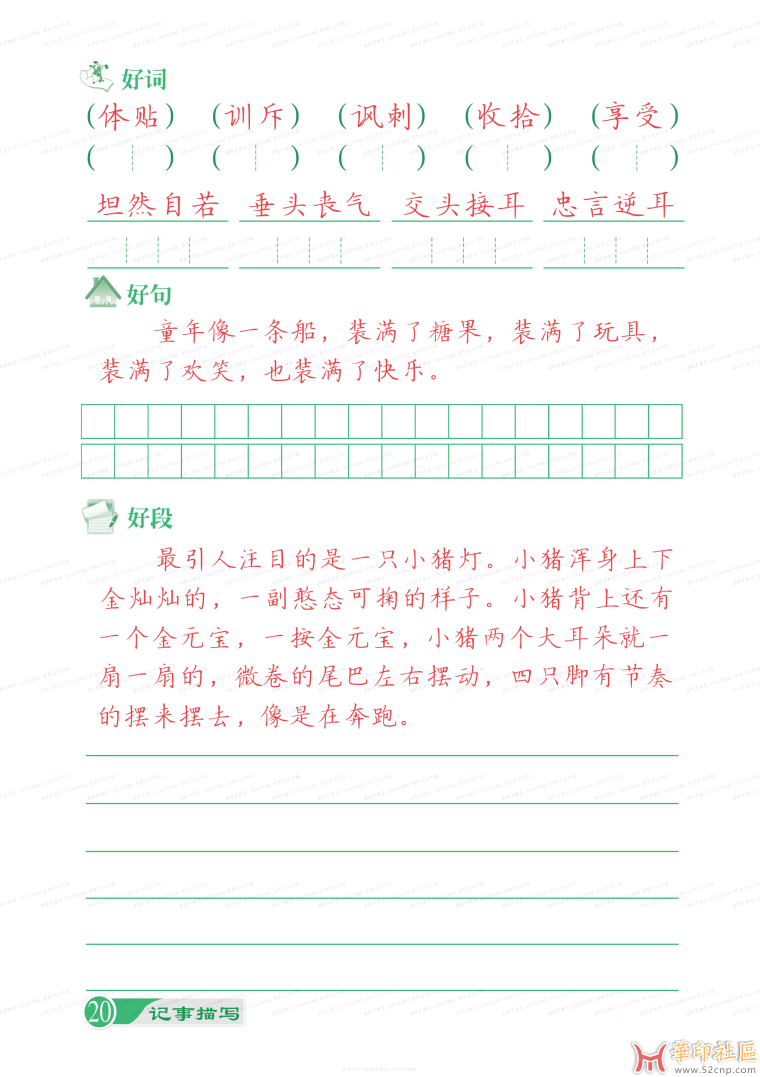 好词
(体贴) (训斥) (讽刺) (收拾) (享受)
( ) ( ) ( ) ( ) ( )
坦然自若 垂头丧气 交头接耳 忠言逆耳
好句
童年像一条船，装满了糖果，装满了玩具，
装满了欢笑，也装满了快乐。
好段
最引人注目的是一只小猪灯。小猪浑身上下
金灿灿的，一副憨态可掬的样子。小猪背上还有
一个金元宝，一按金元宝，小猪两个大耳朵就一
扇一扇的，微卷的尾巴左右摆动，四只脚有节奏
的摆来摆去，像是在奔跑。
20 记事描写
華印社區
www.52cnp.com